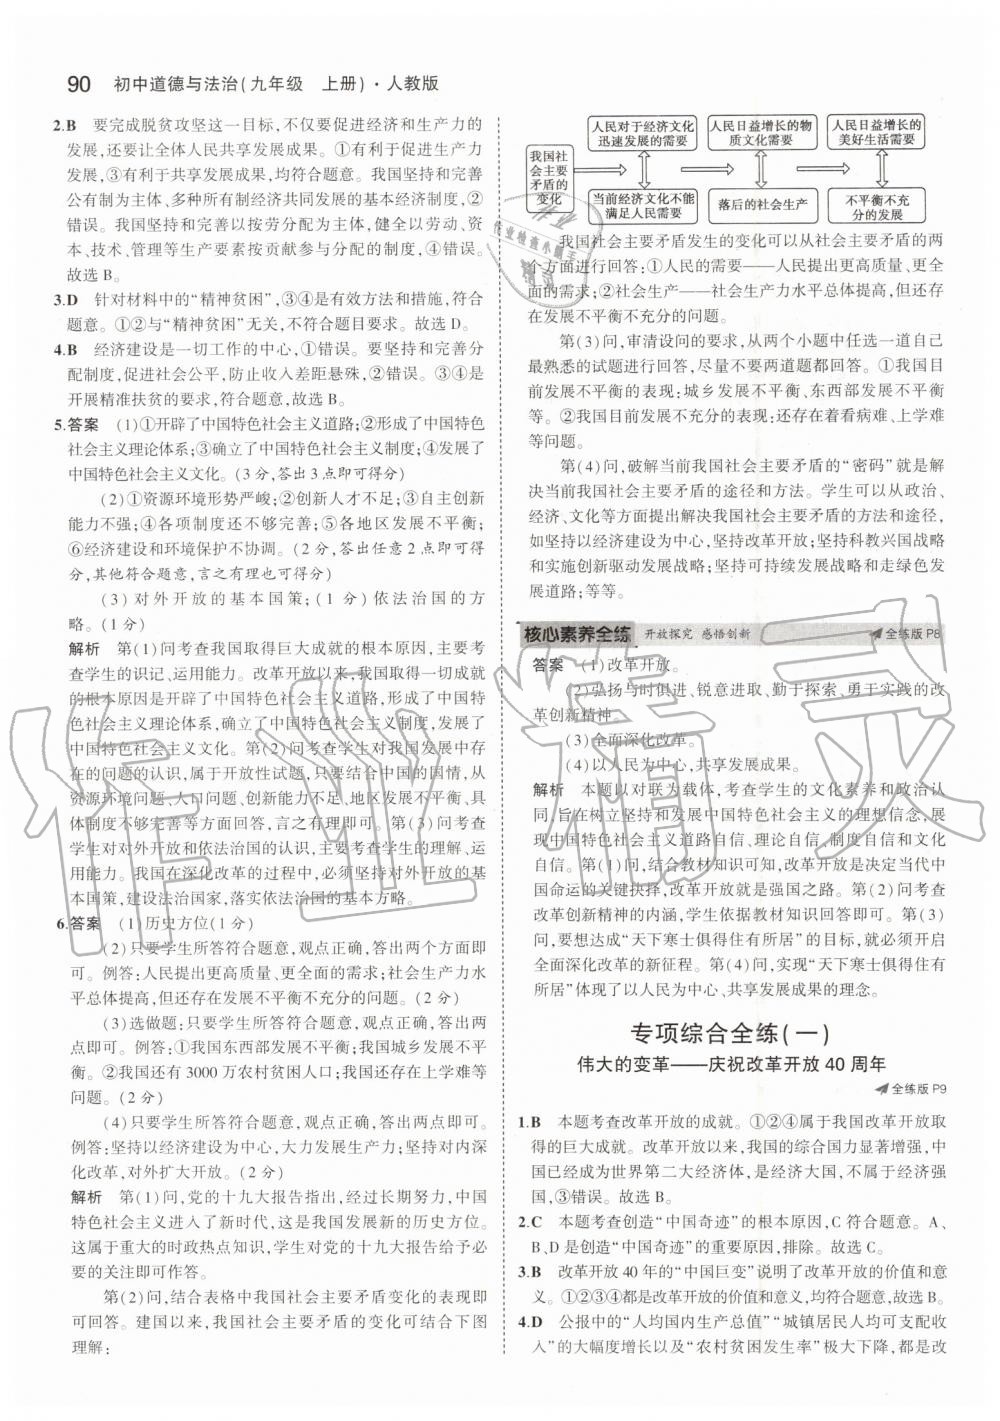 90 初中道德与法治(九年级 上册)·人教版
2.B 要完成脱贫攻坚这一目标,不仅要促进经济和生产力的
发展,还要让全体人民共享发展成果。①有利于促进生产力
发展,③有利于共享发展成果,均符合题意。我国坚持和完善
公有制为主体、多种所有制经济共同发展的基本经济制度,②
错误。我国坚持和完善以按劳分配为主体,健全以劳动、资
本、技术、管理等生产要素按贡献参与分配的制度,④错误。
故选 B。
3.D 针对材料中的“精神贫困”,③④是有效方法和措施,符合
题意。①②与“精神贫困”无关,不符合题目要求。故选 D。
4.B 经济建设是一切工作的中心,①错误。要坚持和完善分
配制度,促进社会公平,防止收入差距悬殊,②错误。③④是
开展精准扶贫的要求,符合题意。故选 B。
5.答案 (1)①开辟了中国特色社会主义道路;②形成了中国特色
社会主义理论体系;③确立了中国特色社会主义制度;④发展了
中国特色社会主义文化。(3 分,答出 3 点即可得分)
(2)①资源环境形势严峻;②创新人才不足;③自主创新
能力不强;④各项制度还不够完善;⑤各地区发展不平衡;
⑥经济建设和环境保护不协调。(2 分,答出任意 2 点即可得
分,其他符合题意,言之有理也可得分)
(3)对外开放的基本国策;(1 分)依法治国的方
略。(1 分)
解析 第(1)问考查我国取得巨大成就的根本原因,主要考
查学生的识记、运用能力。改革开放以来,我们取得一切成就
的根本原因是开辟了中国特色社会主义道路,形成了中国特
色社会主义理论体系,确立了中国特色社会主义制度,发展了
中国特色社会主义文化。第(2)问考查学生对我国发展中存
在的问题的认识,属于开放性试题,只要结合中国的国情,从
资源环境问题、人口问题、创新能力不足、地区发展不平衡、具
体制度不够完善等方面回答,言之有理即可。第(3)问考查
学生对对外开放和依法治国的认识,主要考查学生的理解、运
用能力。我国在深化改革的过程中,必须坚持对外开放的基
本国策,建设法治国家,落实依法治国的基本方略。
6.答案 (1)历史方位(1 分)
(2)只要学生所答符合题意,观点正确,答出两个方面即
可。例答:人民提出更高质量、更全面的需求;社会生产力水
平总体提高,但还存在发展不平衡不充分的问题。(2 分)
(3)选做题:只要学生所答符合题意,观点正确,答出两
点即可。例答:①我国东西部发展不平衡;我国城乡发展不平
衡。②我国还有 3000 万农村贫困人口;还存在上学难等
问题。(2 分)
(4)只要学生所答符合题意,观点正确,答出两点即可。
例答:坚持以经济建设为中心,大力发展生产力;坚持对内深
化改革,对外扩大开放。(2 分)
解析 第(1)问,党的十九大报告指出,经过长期努力,中国
特色社会主义进入了新时代,这是我国发展新的历史方位。
这属于重大的时政热点知识,学生对党的十九大报告给予必
要的关注即可作答。
第(2)问,结合表格中我国社会主要矛盾变化的表现即
可回答。建国以来,我国社会主要矛盾的变化可结合下图
理解:
我国社
会主要
矛盾的
变化
人民对于经济文化
迅速发展的需要
人民日益增长的物
质文化需要
人民日益增长的
美好生活需要
当前经济文化不能
满足人民需要
落后的社会生产
不平衡不充
分的发展
我国社会主要矛盾发生的变化可以从社会主要矛盾的两
个方面进行回答:①人民的需要——人民提出更高质量、更全
面的需求;②社会生产——社会生产力水平总体提高,但还存
在发展不平衡不充分的问题。
第(3)问,审清设问的要求,从两个小题中任选一道自己
最熟悉的试题进行回答,尽量不要两道题都回答。①我国目
前发展不平衡的表现:城乡发展不平衡、东西部发展不平衡
等。②我国目前发展不充分的表现:还存在着看病难、上学难
等问题。
第(4)问,破解当前我国社会主要矛盾的“密码”就是解
决当前我国社会主要矛盾的途径和方法。学生可以从政治、
经济、文化等方面提出解决我国社会主要矛盾的方法和途径,
如坚持以经济建设为中心,坚持改革开放;坚持科教兴国战略
和实施创新驱动发展战略;坚持可持续发展战略和走绿色发
展道路;等等。
核心素养全练 开放探究 感悟创新 全练版 P8
答案 (1)改革开放。
(2)弘扬与时俱进、锐意进取、勤于探索、勇于实践的改
革创新精神。
(3)全面深化改革。
(4)以人民为中心,共享发展成果。
解析 本题以对联为载体,考查学生的文化素养和政治认
同,旨在树立坚持和发展中国特色社会主义的理想信念,展
现中国特色社会主义道路自信、理论自信、制度自信和文化
自信。第(1)问,结合教材知识可知,改革开放是决定当代中
国命运的关键抉择,改革开放就是强国之路。第(2)问考查
改革创新精神的内涵,学生依据教材知识回答即可。第(3)
问,要想达成“天下寒士俱得住有所居”的目标,就必须开启
全面深化改革的新征程。第(4)问,实现“天下寒士俱得住有
所居”体现了以人民为中心、共享发展成果的理念。
专项综合全练(一)
伟大的变革——庆祝改革开放 40 周年
全练版 P9
1.B 本题考查改革开放的成就。①②④属于我国改革开放取
得的巨大成就。改革开放以来,我国的综合国力显著增强,中
国已经成为世界第二大经济体,是经济大国,不属于经济强
国,③错误。故选 B。
2.C 本题考查创造“中国奇迹”的根本原因,C 符合题意。A、
B、D 是创造“中国奇迹”的重要原因,排除。故选 C。
3.B 改革开放 40 年的“中国巨变”说明了改革开放的价值和意
义。①②③④都是改革开放的价值和意义,均符合题意,故选 B。
4.D 公报中的“人均国内生产总值”“城镇居民人均可支配收
入”的大幅度增长以及“农村贫困发生率”都大幅下降,都是改
作业精灵
作业检查小霸王